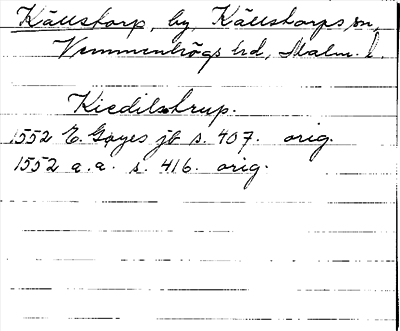 Källstorp, by, Källstorps sn,
Vemmenhögs hd, Malm. l.
Kiedilstrup.
1552 E. Gøyes jb s. 407. orig.
1552 a.a. s. 416. orig.